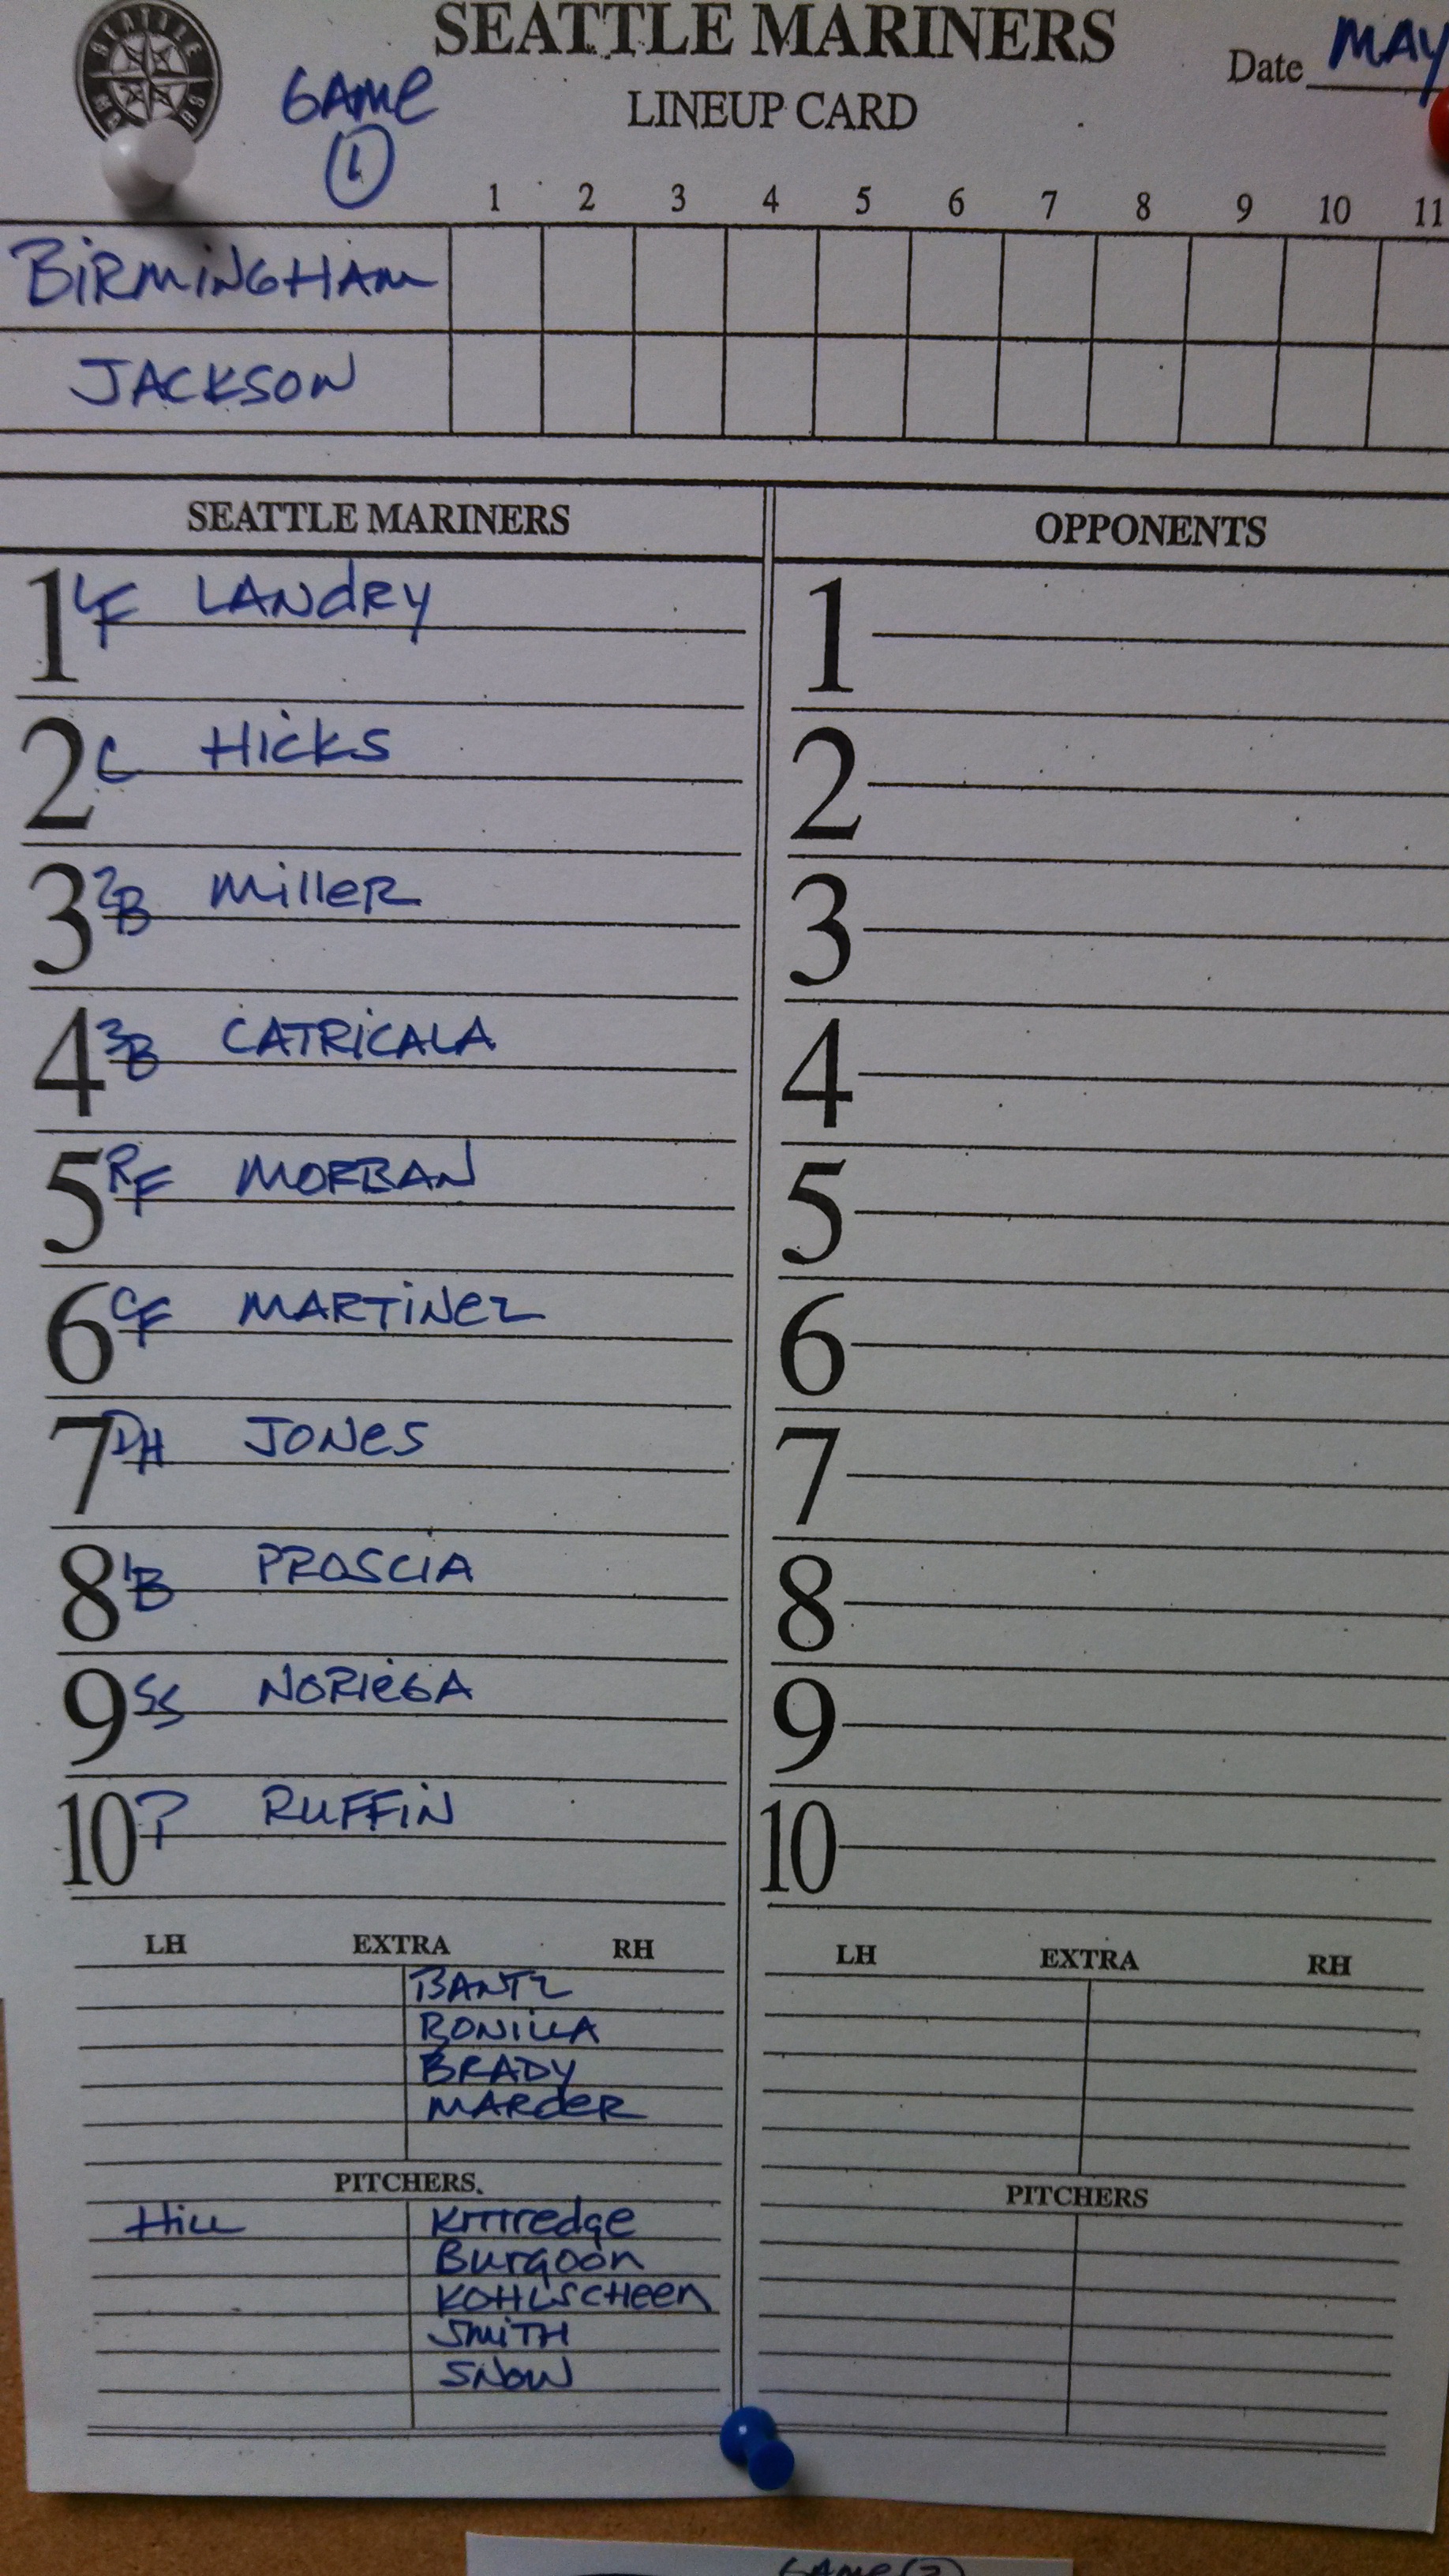 SEATTLE
SEATTLE MARINERS
Date MAY
GAME
LINEUP CARD
1
1 2 3 4 5 6 7 8 9 10 11
BiRMiNGHAM
JACKSON
SEATTLE MARINERS OPPONENTS
1 LF LANdRY 1
2 C Hicks 2
3 2B MilleR 3
4 3B CATRiCALA 4
5 RF MORBAN 5
6 CF MARTiNez 6
7 DH JONes 7
8 1B PROSCIA 8
9 SS NORiegA 9
10 P RUFFiN 10
LH EXTRA RH LH EXTRA RH
BANTZ
BONiLLA
BRADY
MARdeR
PITCHERS. PITCHERS
Hill Kittredge
Burgoon
KOHLSCHeen
SMiTH
SNOW
GAMe (2)